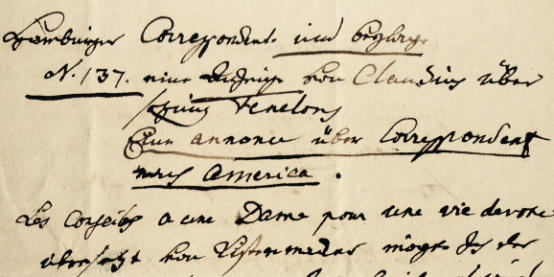 Hamburger Correspondent und beylage
N. 137. eine Anzeige von Claudius über
Fenelons
Eine annonce über Correspondent
aus America.
Les Conseils a une Dame pour une vie devote
übersetzt von möge der